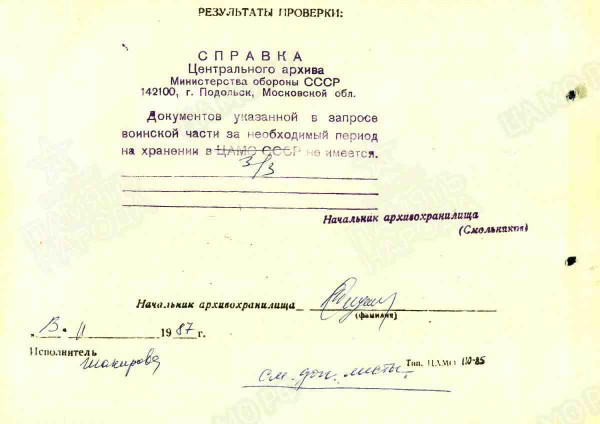 РЕЗУЛЬТАТЫ ПРОВЕРКИ:
СПРАВКА
Центрального архива
Министерства обороны СССР
142100, г. Подольск, Московской обл.
Документов указанной в запросе
воинской части за необходимый период
на хранении в ЦАМО СССР не имеется.
3/3
Начальник архивохранилища
(Смольников)
Начальник архивохранилища
(фамилия)
„13" 11 1987 г.
Исполнитель Шакирова
Тип. ЦАМО 110-85
см. доп. листы.